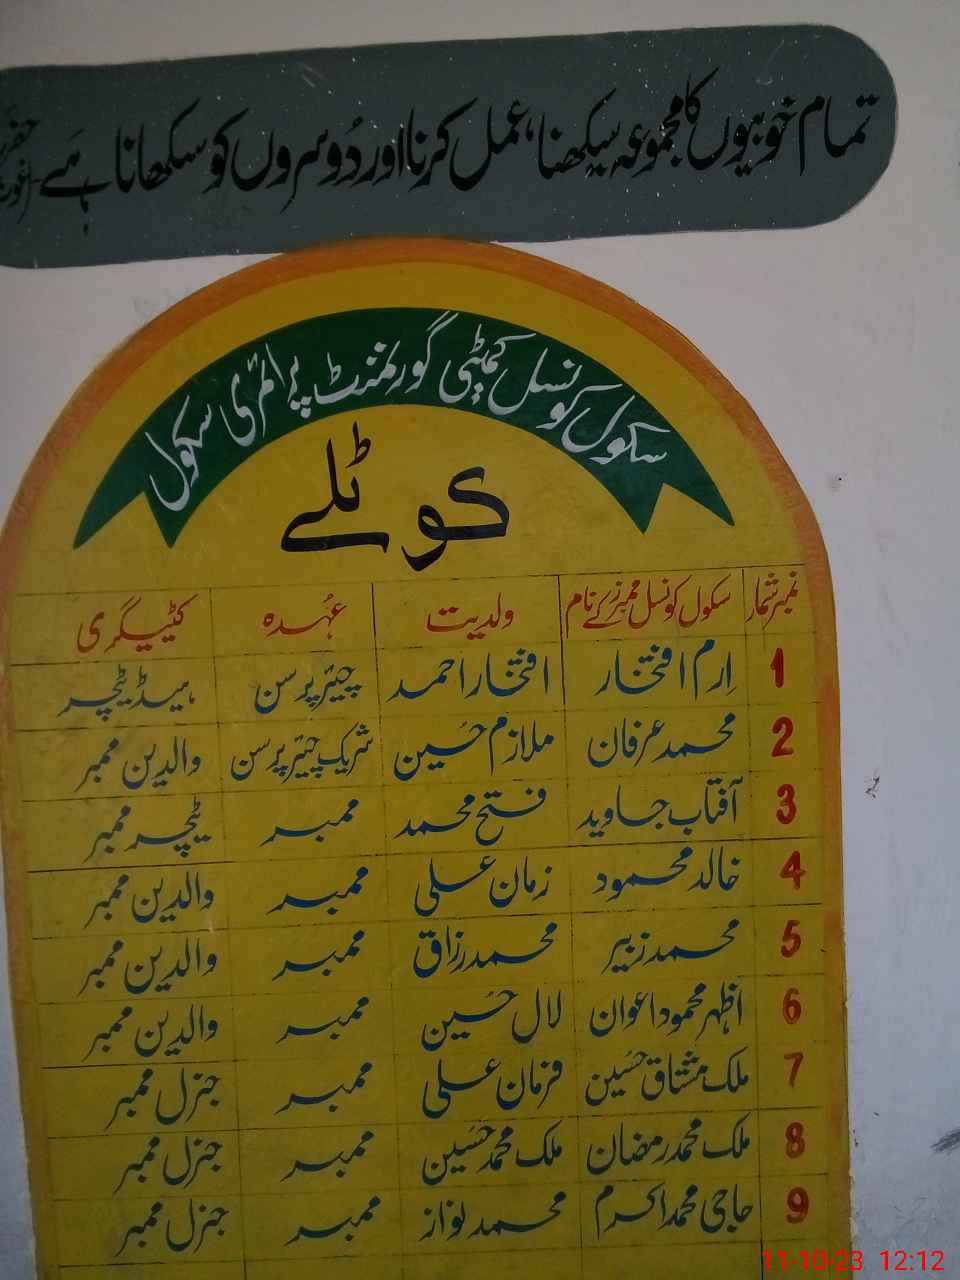 تمام خوبیوں کا مجموعہ سیکھنا، عمل کرنا اور دُوسروں کو سکھانا ہے۔
سکول کونسل کمیٹی گورنمنٹ پرائمری سکول
کوٹلے
نمبر شمار سکول کونسل ممبرز کے نام ولدیت عہُدہ کٹیگری
1 اِرم افتخار افتخار احمد چیئر پرسن ہیڈ ٹیچر
2 محمد عرفان ملازم حسین شریک چیئر پرسن والدین ممبر
3 آفتاب جاوید فتح محمد ممبر ٹیچر ممبر
4 خالد محمود زمان علی ممبر والدین ممبر
5 محمد زبیر محمد رزاق ممبر والدین ممبر
6 اظہر محمود اعوان لال حسین ممبر والدین ممبر
7 ملک مشتاق حسین فرمان علی ممبر جنرل ممبر
8 ملک محمد رمضان ملک محمد حسین ممبر جنرل ممبر
9 حاجی محمد اکرم محمد نواز ممبر جنرل ممبر
11-10-23 12:12